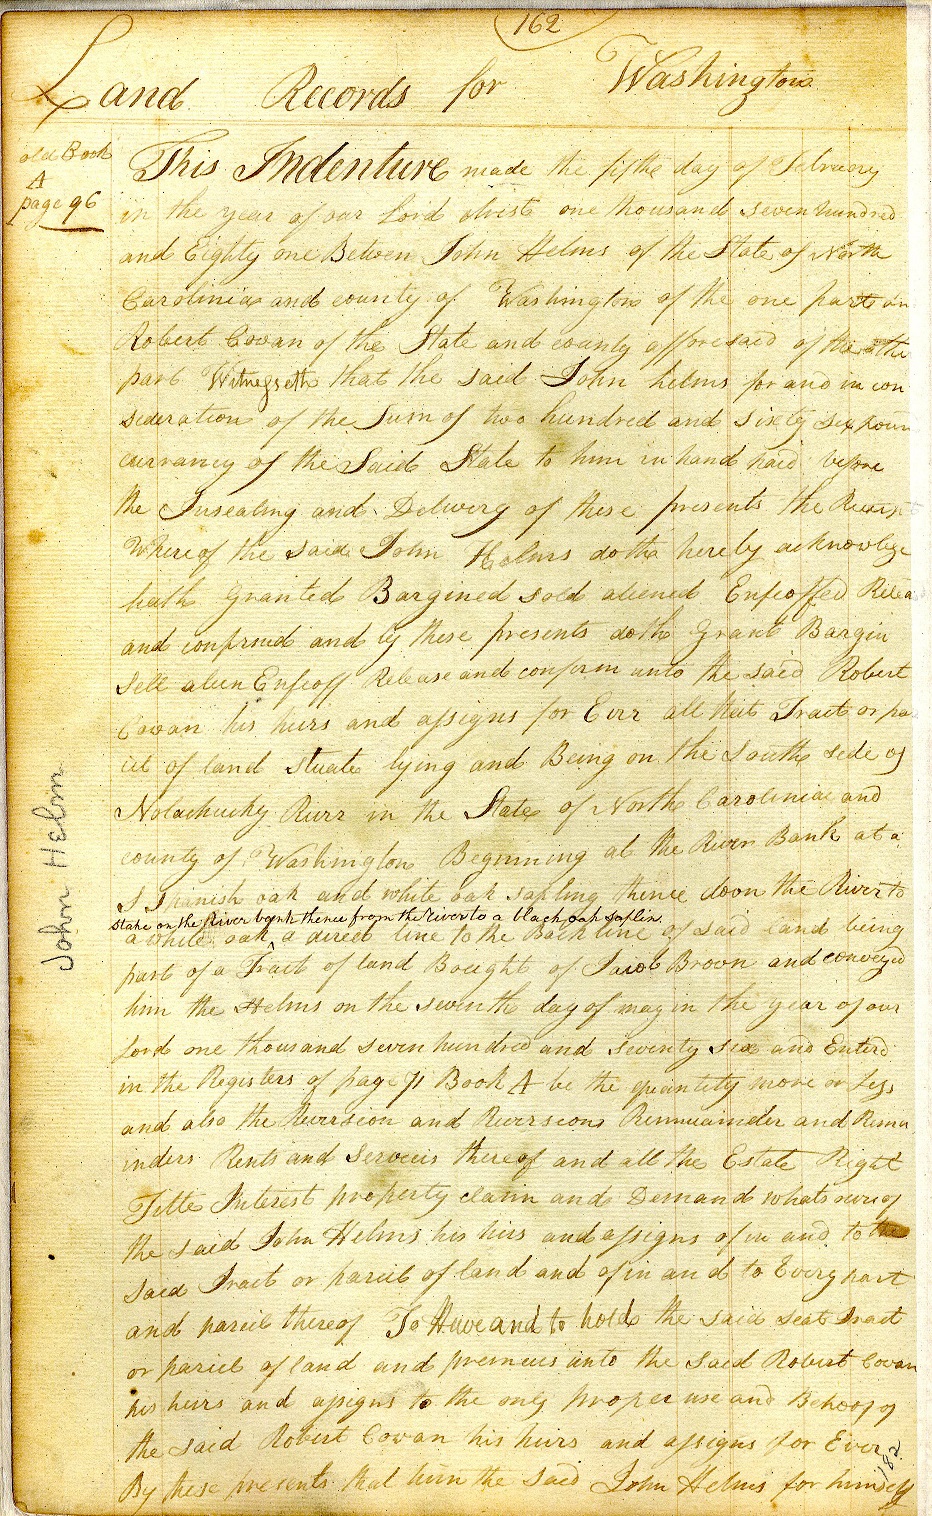 162
Land Records for Washington
old Book
A
page 96
This Indenture made the fifth day of February
in the year of our Lord christ one thousand seven hundred
and Eighty one Betwen John Helms of the State of North
Carolinia and county of Washington of the one part an
Robert Cowan of the State and county afforesaid of the othe
part Witnesseth that the said John helms for and in con
sederation of the Sum of two hundred and sixty six poun
currancy of the Said State to him in hand paid before
the Insealing and Delivery of these presents the Receipt
Whereof the said John Helms doth hereby acknowlege
hath Granted Bargined sold aliened Enfeoffed Relea
and confirmed and by these presents doth Grant Bargin
Sell alien Enfeoff Release and confirm unto the said Robert
Cowan his heirs and assigns for Ever all that Tract or pa
cel of land stuate lying and Being on the South side of
Nolachucky River in the State of North Caroliniia and
county of Washington Beginning at the River Bank at a
S Spanish oak and white oak sapling thence down the River to
Stake on the River bank thence from the river to a black oak saplin
a white oak ^ a direct line to the Back line of said land being
part of a Tract of land Bought of Jacob Brown and conveyed
him the Helms on the seventh day of may in the year of our
Lord one thousand seven hundred and seventy six and Enterd
in the Registers of page 71 Book A be the quantity more or less
and also the Reversion and Reversions Remmainder and Rema
inders Rents and Services thereof and all the Estate Right
Title Interest property claim and Demand whatsoever of
the said John Helms his heirs and assigns of in and to the
said Tract or parcel of land and of in and to Every part
and parcel thereof To Have and to hold the said seat Tract
or parcel of land and premices unto the said Robert Cowan
his heirs and assigns to the only proper use and Behoof of
the said Robert Cowan his heirs and assigns for Ever
By these presents that him the said John Helms for himself
John Helm
182